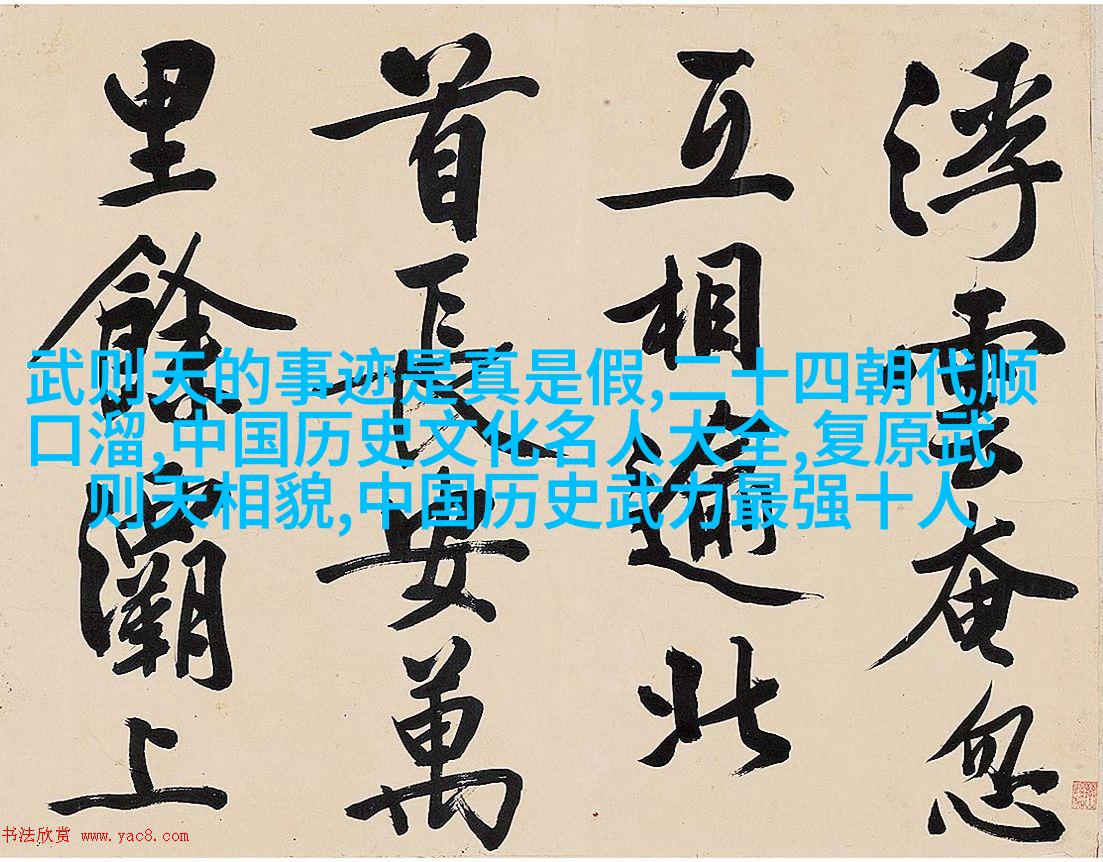 浮雲奄忽
互相逾北
首長安萬
里餘灞上
武则天的事迹是真是假,二十四朝代顺
口溜,中国历史文化名人大全,复原武
则天相貌,中国历史武力最强十人
书法欣赏 www.yac8.com